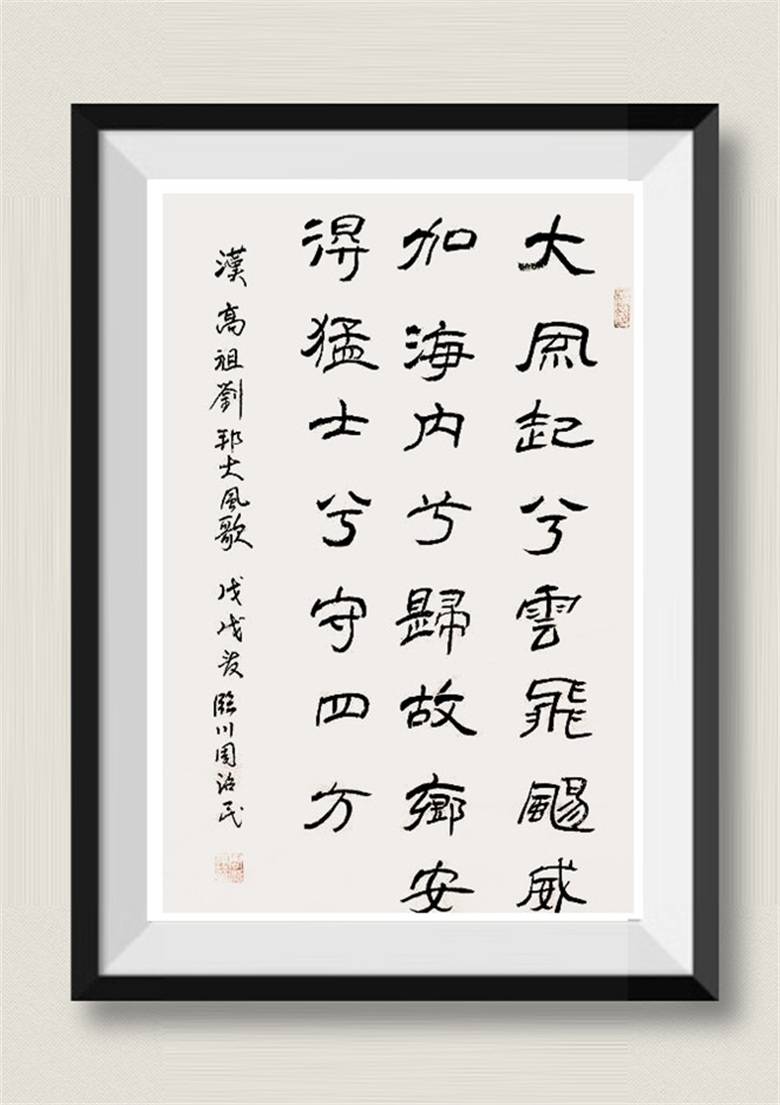 大風起兮雲飛颺威
加海内兮歸故鄉安
得猛士兮守四方
漢高祖劉邦大風歌 戊戌夏 臨川周治民